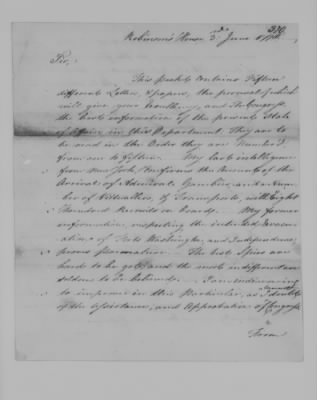 370
Robinson's House 3d June 1778
Sir,
This packet contains Fifteen
different Letters & papers, the perusal of which
will give your Excellency, and The Congress
the best information of the present State
of affairs in this Department. They are to
be read in the Order they are Numbered
from one to fifteen. My last intelligence
from New York Confirms the Account of the
Arrival of Admiral Gambier, and a Num-
ber of Victuallers, & Transports, with Eight
Hundred Recruits on board. My former
information, respecting the intended Evacua-
tion of Forts Washington, and Independence,
proves premature. The best Spies are
hard to be got, and the most indifferent are
seldom to be believed. I am endeavouring
to improve in this Particular, as I
of the Assistance, and Approbation of Congress
From